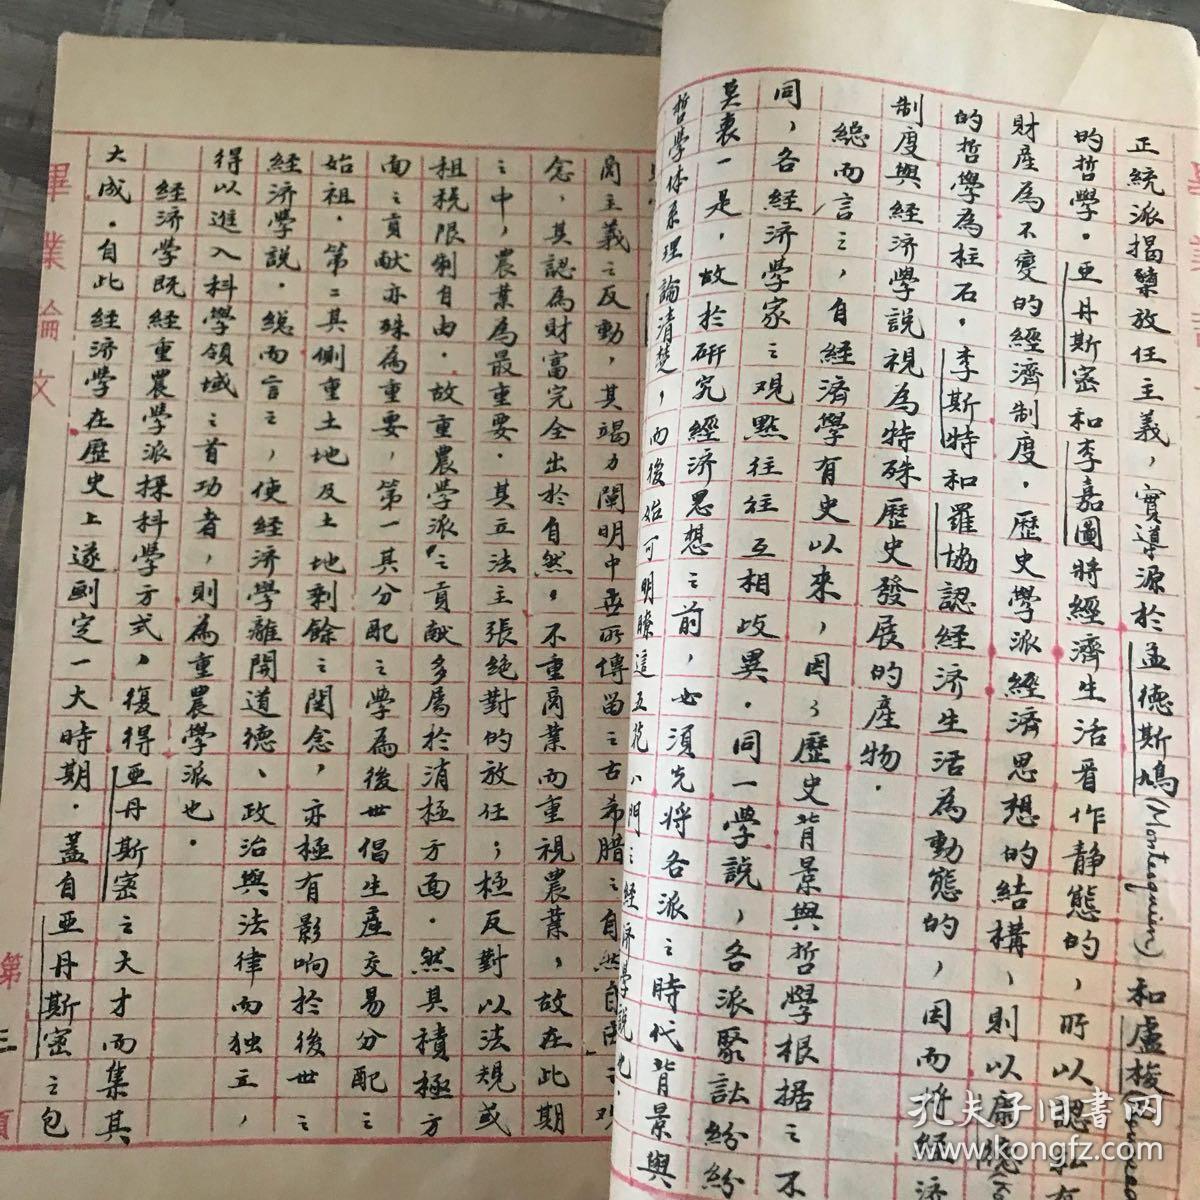 正統派揭櫫放任主義，實導源於孟德斯鳩(Montesquieu)和盧梭
的哲學．亚丹斯密和李嘉圖將經濟生活看作静態的，所以認
財產為不变的經濟制度．歷史學派經濟思想的結構，則以康德
的哲學為柱石，李斯特和羅協認経济生活為動態的，因而将経济
制度與経济學説視為特殊歷史發展的產物．
總而言之，自経濟學有史以來，因歷史背景與哲學根据之不
同，各経济學家之观點往往互相歧異．同一學説，各派聚訟紛紛
莫衷一是．故於研究經济思想之前，必須先將各派之時代背景與
哲學体系理論清楚，而後始可明瞭這五花八門之経济學説也．
商主義之反動，其竭力闡明中世所傳留之古希腊之自然自由之观
念，其認為財富完全出於自然．不重商業而重視農業，故在此期
之中，農業為最重要．其立法主張絶對的放任；極反對以法規或
租税限制自由．故重農學派之貢献多属於消極方面．然其積極方
面之貢献亦殊為重要，第一其分配之學為後世倡生産交易分配之
始祖．第二其側重土地及土地剩餘之関念，亦極有影响於後世之
経济學説．總而言之，使経济學離開道德、政治與法律而独立，
得以進入科學領域之首功者，則為重農學派也．
経济學既経重農學派採科學方式，復得亚丹斯密之大才而集其
大成．自此経济學在歷史上遂劃定一大時期．蓋自亚丹斯密之包
畢業論文
第三頁
孔夫子旧書网
www.kongfz.com